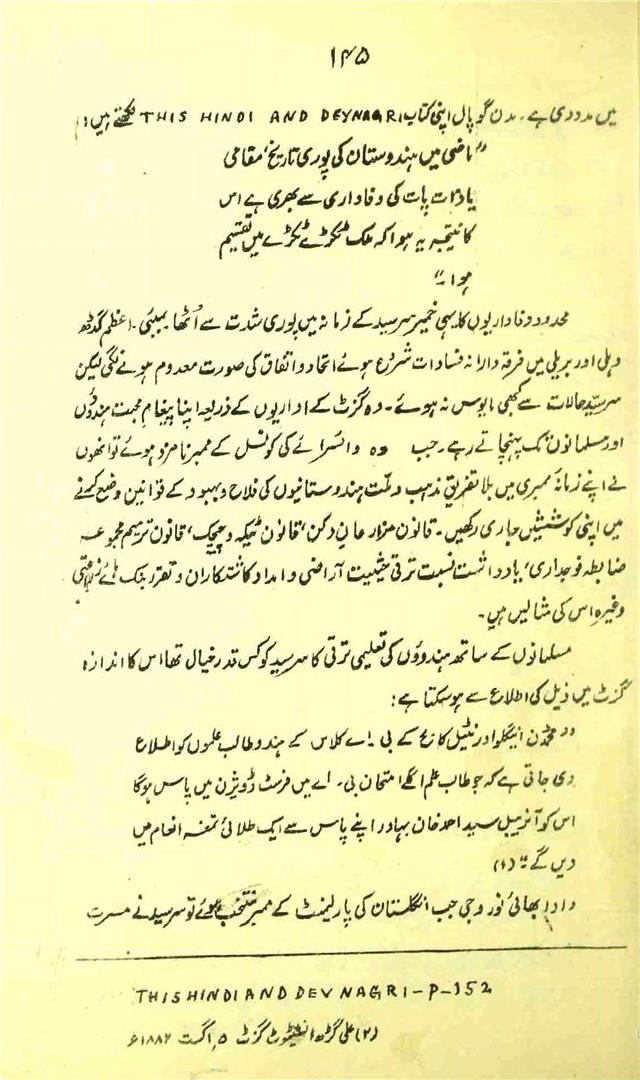 ۱۴۵
میں مدد دی ہے۔ مدن گوپال اپنی کتاب THIS HINDI AND DEVNAGRI لکھتے ہیں:
"ماضی میں ہندوستان کی پوری تاریخ، مقامی
یا ذات پات کی وفاداری سے بھری ہے اس
کا نتیجہ یہ ہوا کہ ملک ٹکڑے ٹکڑے میں تقسیم
ہوا۔"
محدود وفاداریوں کا یہی خمیر سرسید کے زمانہ میں پوری شدت سے اُٹھا بمبئی۔ اعظم گڈھ
دہلی اور بریلی میں فرقہ دارانہ فسادات شروع ہوئے اتحاد و اتفاق کی صورت معدوم ہونے لگی لیکن
سرسیّد حالات سے کبھی مایوس نہ ہوئے۔ وہ گزٹ کے اداریوں کے ذریعہ اپنا پیغام محبت ہندوُں
اور مسلمانوں تک پہنچاتے رہے۔ جب وہ وائسرائے کی کونسل کے ممبر نامزد ہوئے تو انھوں
نے اپنے زمانۂ ممبری میں بلا تفریق مذہب و ملّت ہندوستانیوں کی فلاح و بہبود کے قوانین وضع کرنے
میں اپنی کوششیں جاری رکھیں۔ قانون مزارعان دکن، قانون ٹیکہ و چیچک، قانون ترمیم مجموعہ
ضابطہ فوجداری، یادداشت نسبت ترقی حیثیت آراضی و امداد کاشتکاران و تقرر بنک ہائے زراعتی
وغیرہ اس کی مثالیں ہیں۔
مسلمانوں کے ساتھ ہندوؤں کی تعلیمی ترقی کا سرسید کو کس قدر خیال تھا اس کا اندازہ
گزٹ میں ذیل کی اطلاع سے ہو سکتا ہے:
"محمڈن اینگلو اورنٹیل کالج کے بی۔ اے کلاس کے ہندو طالب علموں کو اطلاع
دی جاتی ہے کہ جو طالب علم اگلے امتحان بی۔ اے میں فرسٹ ڈویژن میں پاس ہوگا
اس کو آنریبل سید احمد خان بہادر اپنے پاس سے ایک طلائی تمغہ انعام میں
دیں گے۔" (۱)
دادا بھائی نوروجی جب انگلستان کی پارلیمنٹ کے ممبر منتخب ہوئے تو سرسید نے مسرت
THIS HINDI AND DEVNAGRI-P-152
(۲) علی گڑھ انسٹیٹیوٹ گزٹ ۵، اگست ۱۸۸۲ء